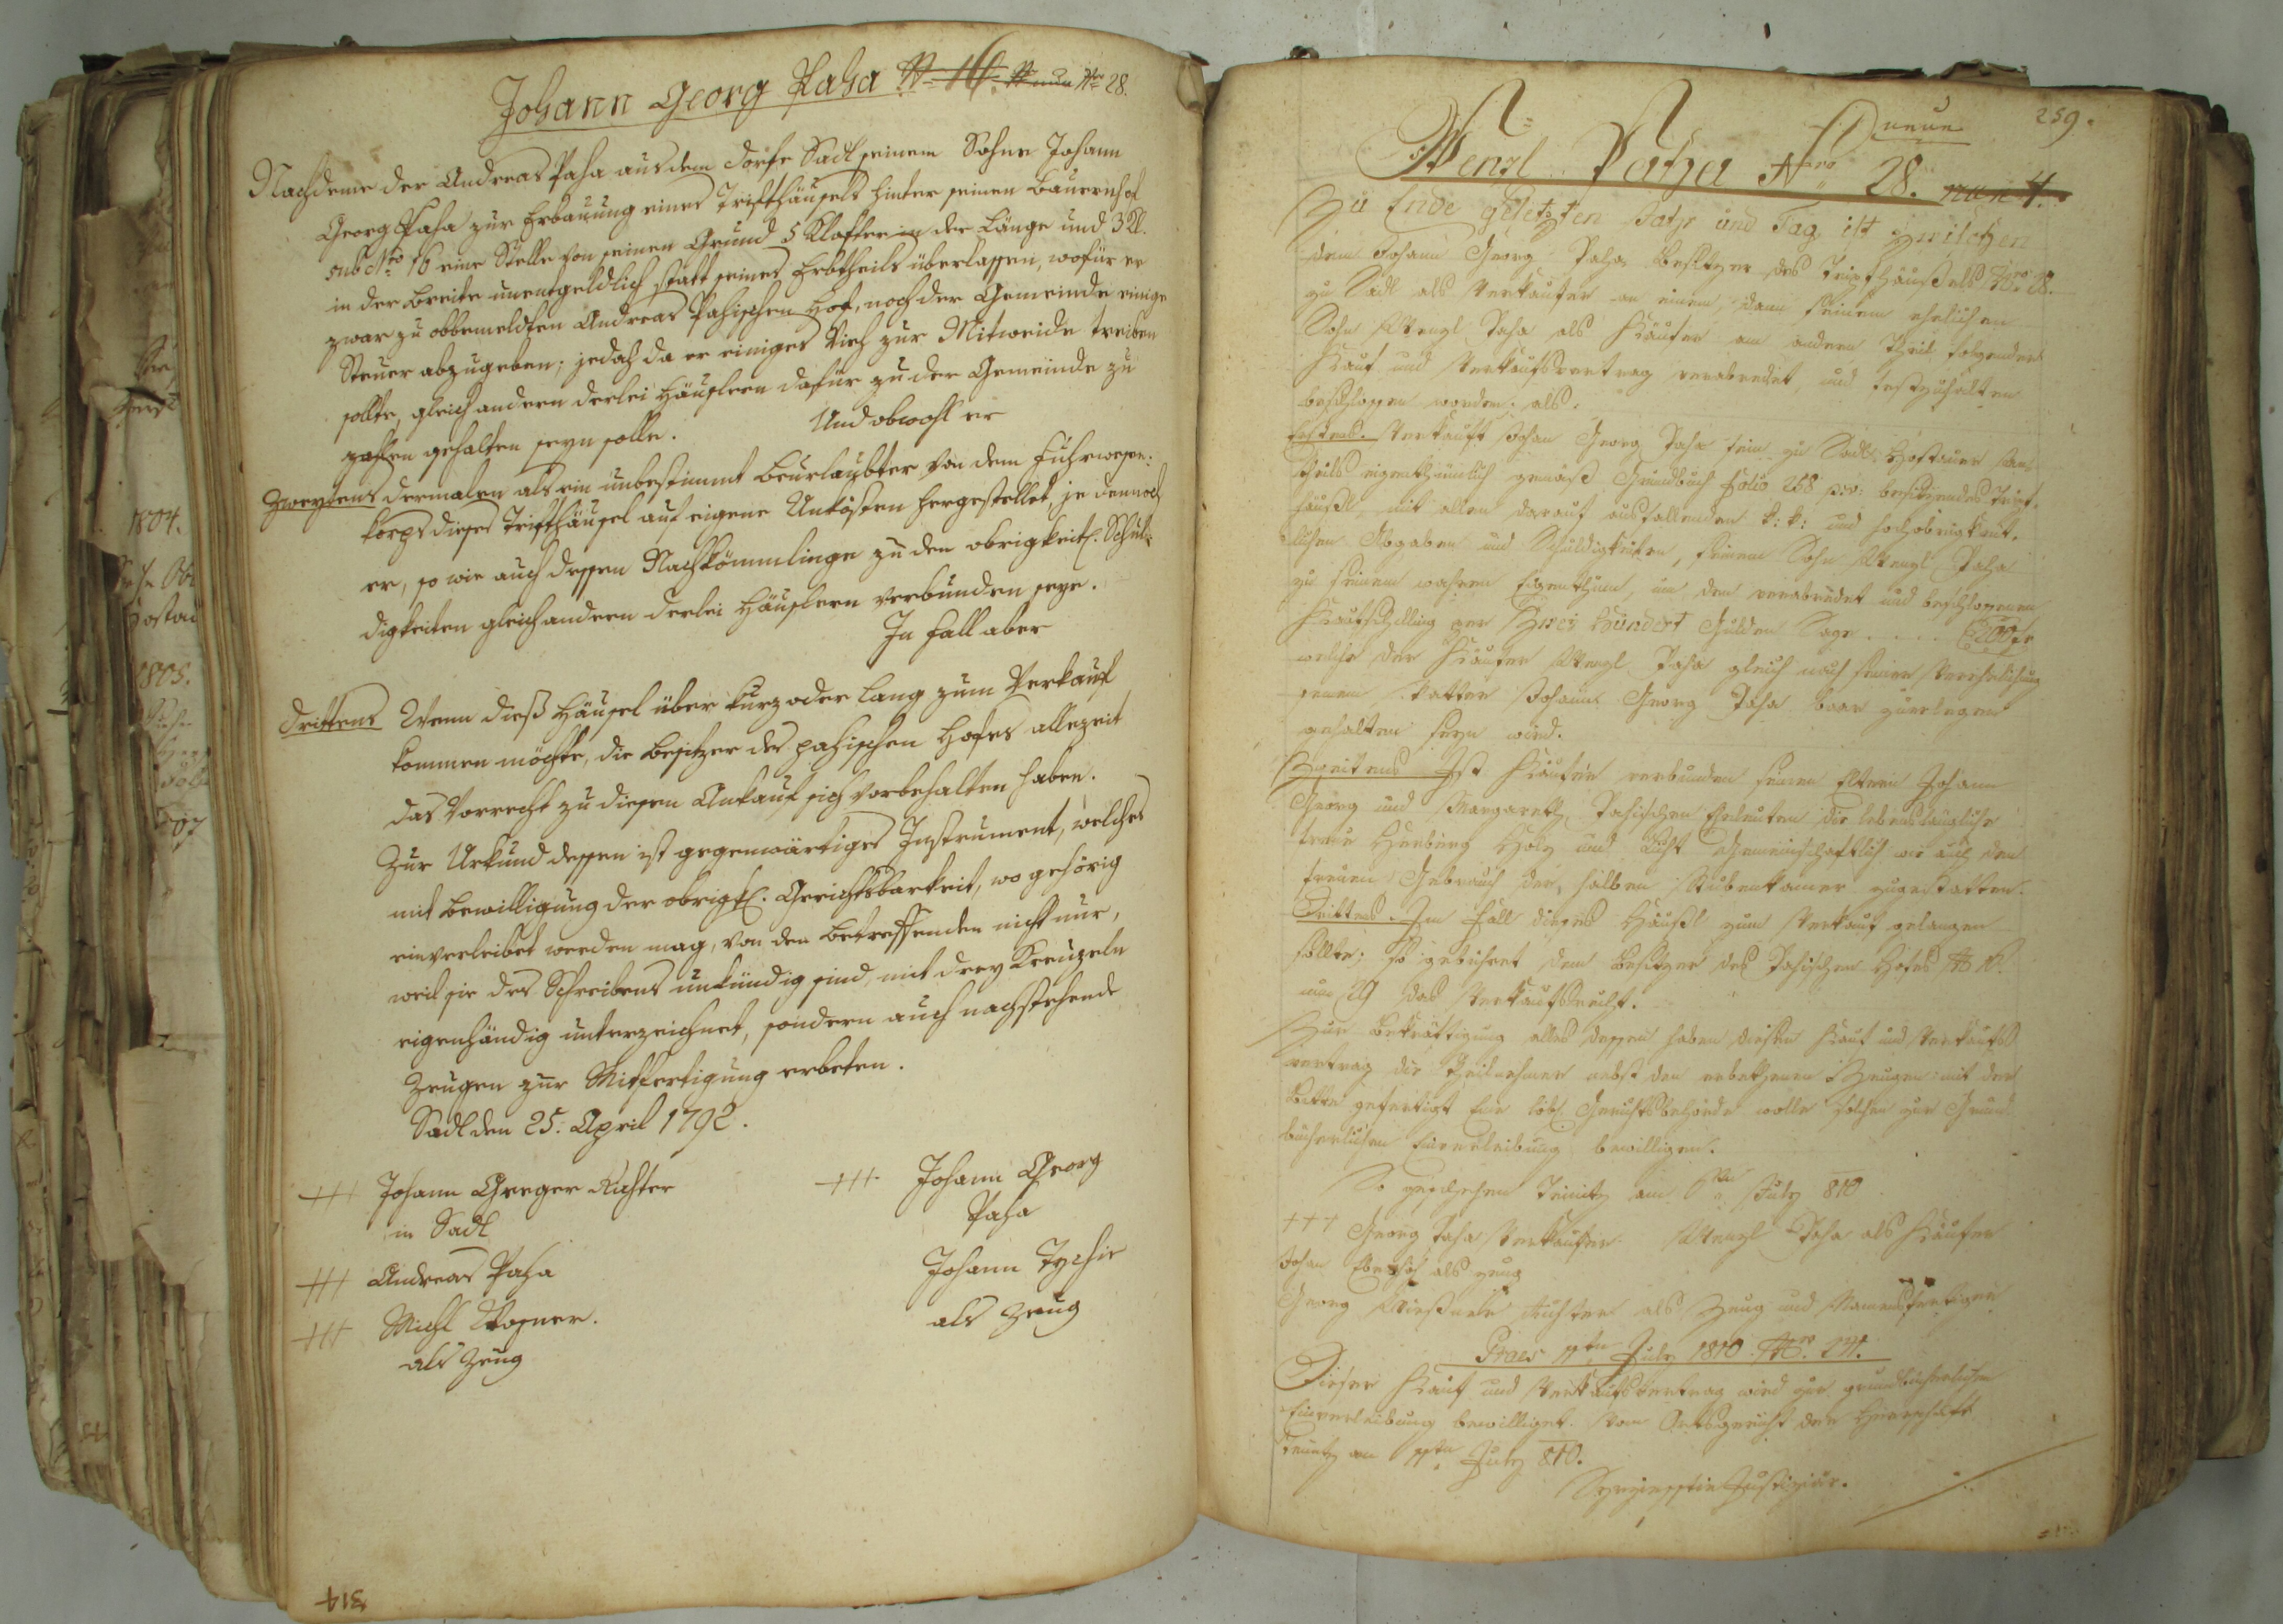 Johann Georg Paha N: 16. N nun Nro 28.
Nachdeme der Andreas Paha aus dem Dorfe Sadl seinem Sohne Johann
Georg Paha zur Erbauung eines Trifthäusels hinter seinen Bauernhof
sub Nro 16 eine Stelle von seinen Grund 5 Klafter in der Länge und 3 Kl.
in der Breite unentgeldlich statt seines Erbtheils überlassen, wofür er
zwar zu obbemeldten Andreas Pahischen Hof, noch der Gemeinde einige
Steuer abzugeben; jedoch da er einiges Vieh zur Mitweide treiben
sollte, gleich andern derlei Häuslern dafür zu der Gemeinde zu
zahlen gehalten seyn solle. Und obwohl er
Zweytens dermalen als ein unbestimmt beurlaubter von dem Fuhrwesen-
korps dieses Trifthäusel auf eigene Unkösten hergestellet, je dennoch
er, so wie auch dessen Nachkömmlinge zu den obrigkeitl. Schul-
digkeiten gleich andern derlei Häuslern verbunden seye.
In Fall aber
Drittens Wenn dieß Häusel über kurz oder lang zum Verkauf
kommen möchte, die Besitzer des pahischen Hofes allezeit
das Vorrecht zu diesen Ankauf sich vorbehalten haben.
Zur Urkund dessen ist gegenwärtiges Instrument, welches
mit Bewilligung der obrigkl. Gerichtsbarkeit, wo gehörig
einverleibet werden mag, von den betreffenden nicht nur,
weil sie des Schreibens unkündig sind, mit drey Kreuzeln
eigenhändig unterzeichnet, sondern auch nachstehende
Zeugen zur Mitfertigung erbeten.
Sadl den 25. April 1792.
+++ Johann Greger Richter
in Sadl
+++ Andreas Paha
+++ Michl Wagner.
als Zeug
+++ Johann Georg
Paha
Johann Tychir
als Zeug
314
259.
neue
Wenzl Paha Nro 28. nun 4.
Zu Ende gesetzten Jahr und Tag ist zwischen
dem Johann Georg Paha Besitzer des Trifthäußels Nro 28.
zu Sadl als Verkäufer an einem, dann seinem ehelichen
Sohn Wenzl Paha als Käufer am andern Theil folgender
Kauf und Verkaufsvertrag verabredet, und festzuhalten
beschlossen worden: als.
Erstens. Verkauft Johan Georg Paha sein zu Sadl
eigenthümlich gemäß Grundbuch folio 258 besitzendes Trift-
häußl, mit allen darauf ausfallenden k: k: und hochobrigkeit-
lichen Abgaben und Schuldigkeiten, seinem Sohn Wenzl Paha
zu seinem wahren Eigenthum, um den verabredet und beschlossenen
Kaufschilling per Zwei Hundert Gulden Sage .... 200 fr
welche der Käufer Wenzl Paha gleich nach seiner Verehelichung
seinem Vatter Johann Georg Paha baar zuerlegen
gehalten seyn wird.
Zweitens Ist Käufer verbunden seinen Eltern Johann
Georg und Margareth Pahischen Eheleuten die lebenslängliche
freie Herberg Holz und Licht gemeinschaftlich wie auch den
freuen Gebrauch der halben Stubenkamer zugestatten.
Drittens. Im Fall dieses Häußl zum Verkauf gelangen
sollte; so gebühret dem Besitzer des Pahischen Hofes N 16.
nun 29 das Verkaufsrecht.
Zur Bekräftigung alles dessen haben diesen Kauf und Verkaufs
vertrag die Theilnehmer nebst den erbethenen Zeugen mit der
Bitte gefertigt Eine löbl. Gerichtsbehörde wolle solchen zur Grund
bücherlichen Einverleibung bewilligen.
So geschehen am 6ten July 810
+++ Georg Paha Verkäufer Wenzl Paha als Käufer
Johan als Zeug
Georg Richter als Zeug und Namensfertiger
Praes 11ten July 1810 Nro.
Dieser Kauf und Verkaufsvertrag wird zur grundbücherlichen
Einverleibung bewilliget. Vom Ortsgericht der Herrschaft
am 11ten July 810.
Justiziär.